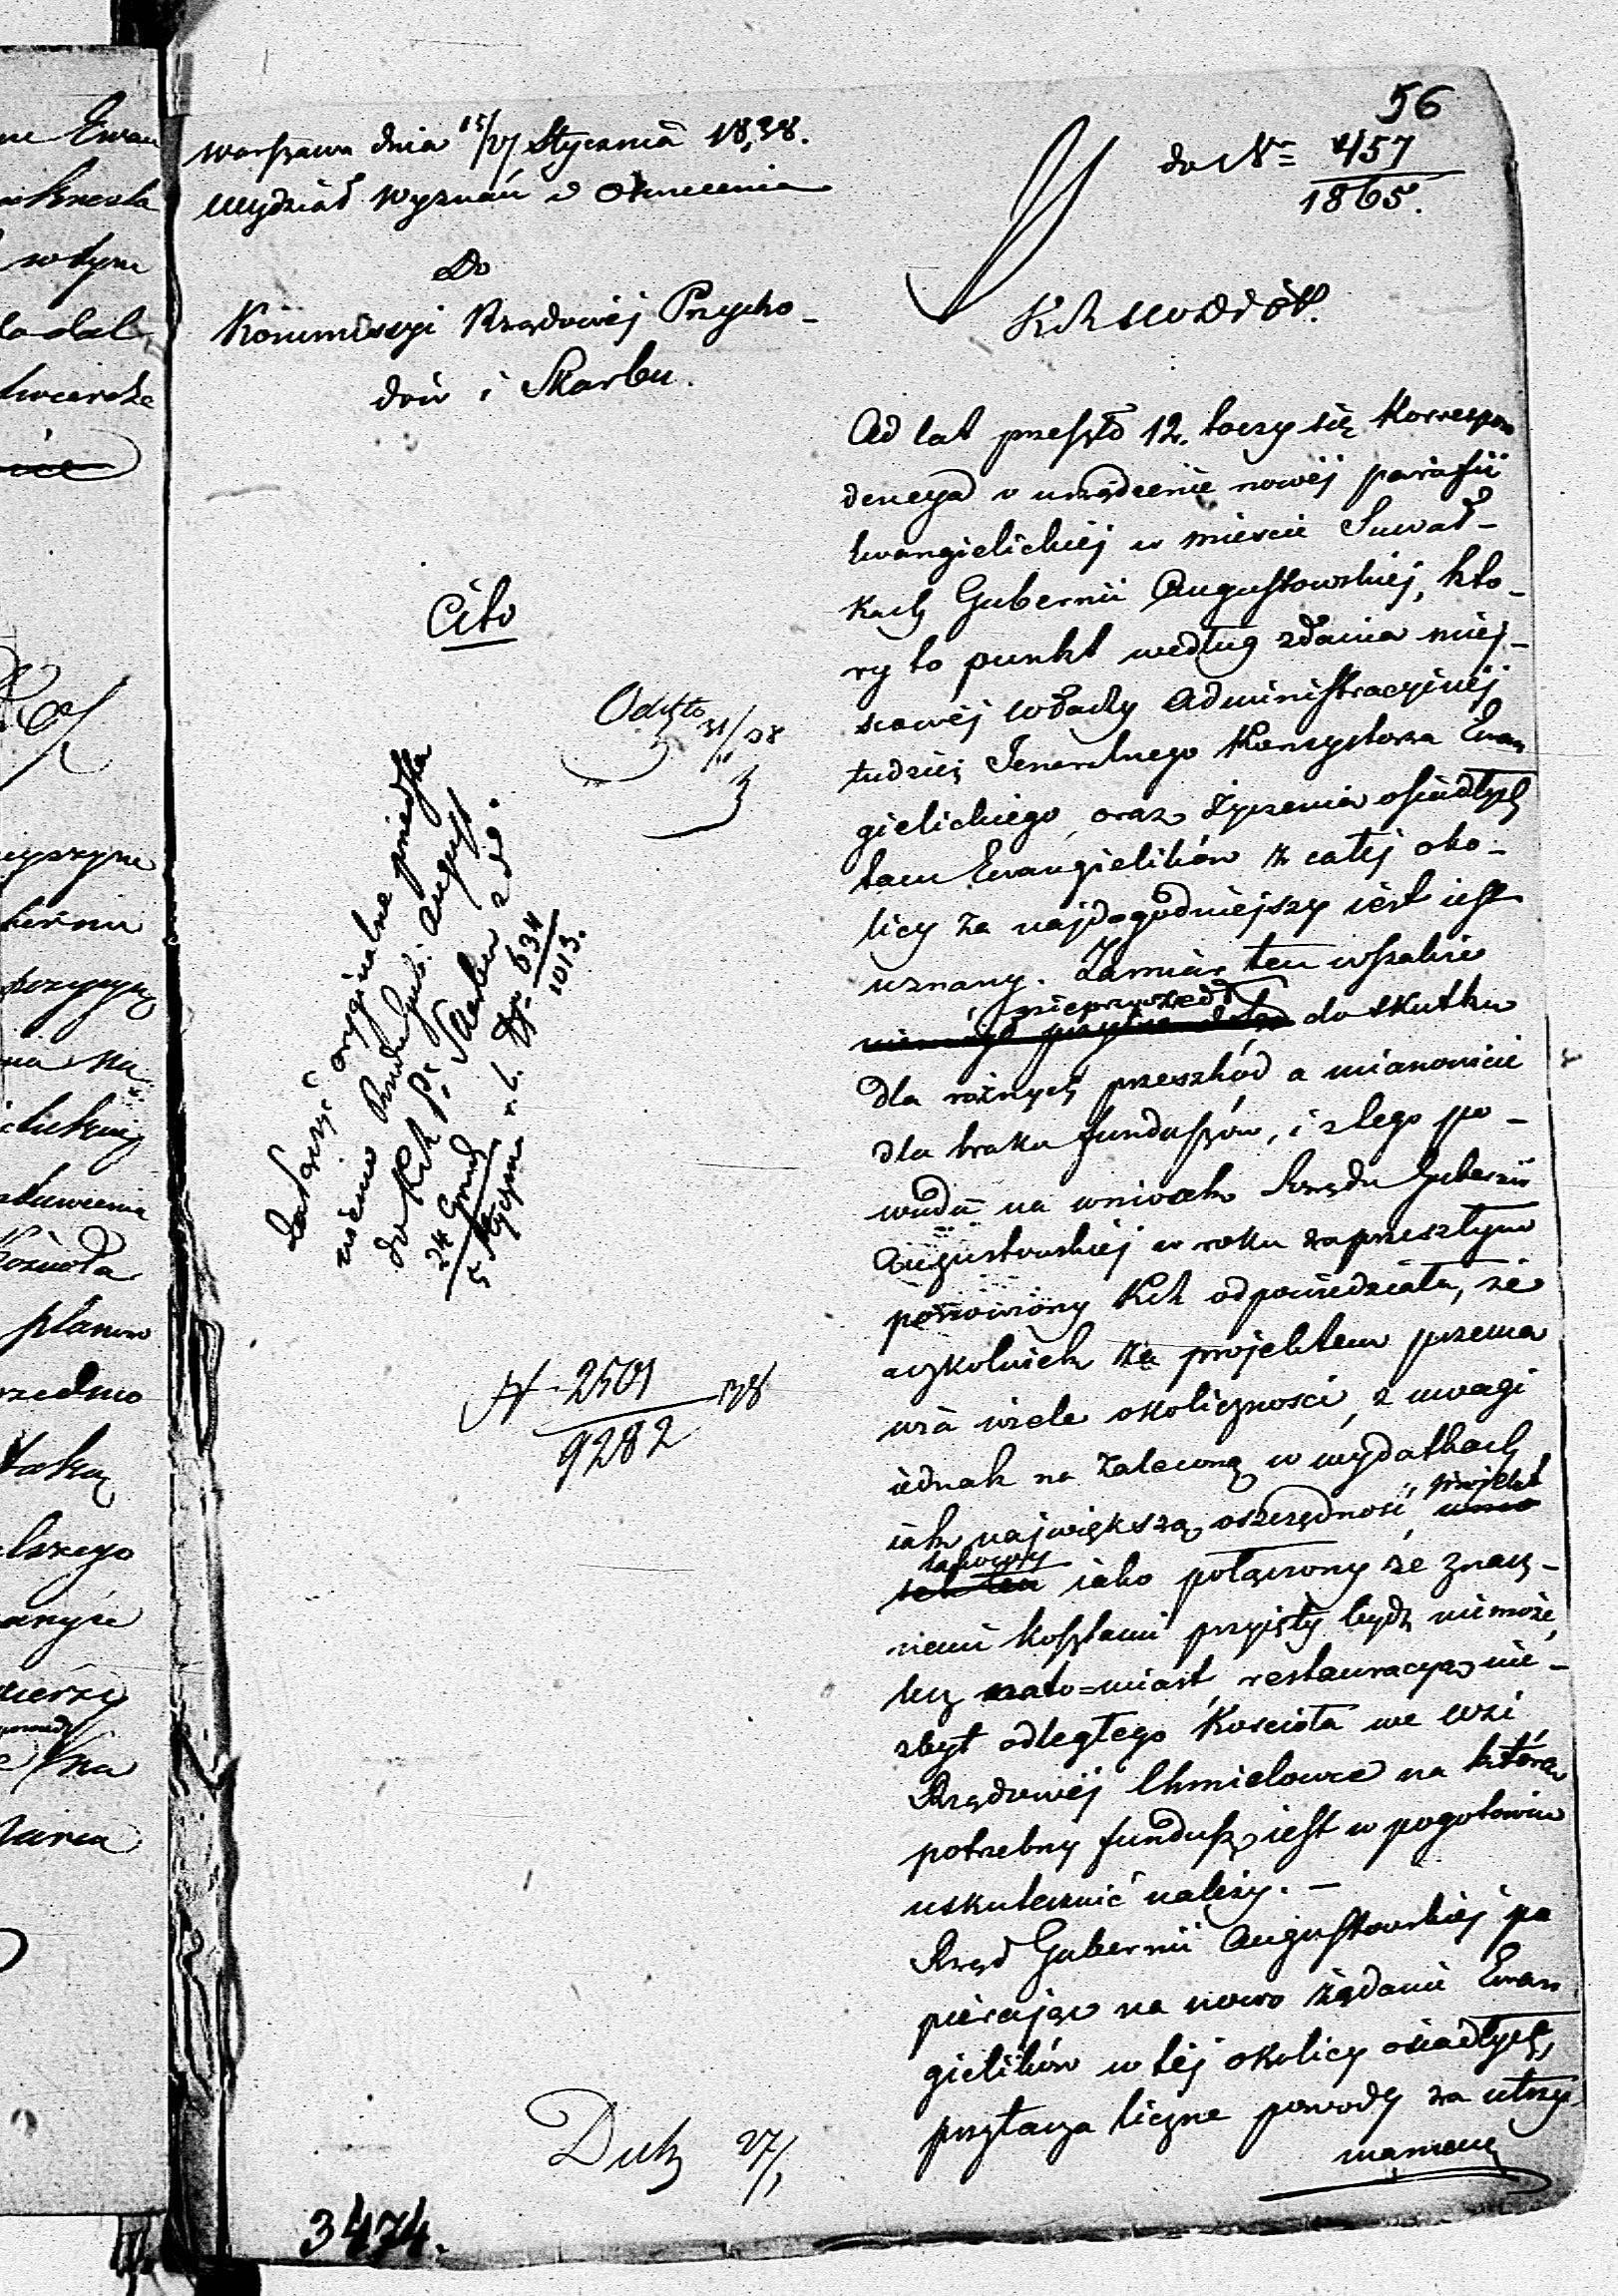 56
Warszawa dnia 15/27 Stycznia 1838.
Wydział Wyznań i Oświecenia
Do
Kommissyi Rządowéj Przycho-
dów i Skarbu.
do Nr 457
1865.
Cito
Odesto 31/1 38
Dołączyć oryginalne
Rządu Gub: August
do K R P i Skarbu z dd.
24 Grud
5 Stycznia r. b. Nr 634
1013.
N 2501
9282 38
Duk 27/1
3474.
Od lat przeszło 12. toczy się Korrespon
dencya o urządzenie nowéj parafii
Ewangielickiéj w mieście Suwał-
kach Gubernii Augustowskiéj, kto-
ry to punkt według zdania miej-
scowéj władzy Administracyinéj
tudzież Jeneralnego Konsystorza Ewan
gielickiego, oraz życzenia osiadłych
tam Ewangielików z całéj oko-
licy za najdogodniejszy iest
uznany. Zamiar ten wszakże
nieprzyszedł do skutku
dla różnych przeszkód a mianowicie
dla braku funduszów, i z tego po-
wodu na wniosek Rządu Gubernii
Augustowskiéj w roku zaprzeszłym
ponowiony KRh odpowiedziała, że
aczkolwiek za projektem przema
wia wiele okoliczności, z uwagi
iednak na zaleconą w wydatkach
iak największą oszczędność, projekt
takowy iako połączony ze znacz-
nemi kosztami przyięty bydź niemoże,
lecz nato=miast restauracyą nie-
zbyt odległego Kościoła we wsi
Rządowéj Chmielowce na którą
potrzebny fundusz iest w pogotowiu
uskutecznić należy. -
Rząd Gubernii Augustowskiéj po
pierając na nowo żądanie Ewan
gielików w téj okolicy osiadłych,
przytacza liczne powody za utrzy
maniem